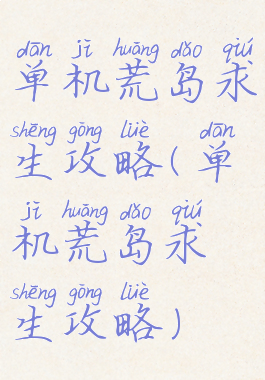 dān jī huāng dǎo qiú
单机荒岛求
shēng gōng lüè dān
生攻略(单
jī huāng dǎo qiú
机荒岛求
shēng gōng lüè
生攻略)